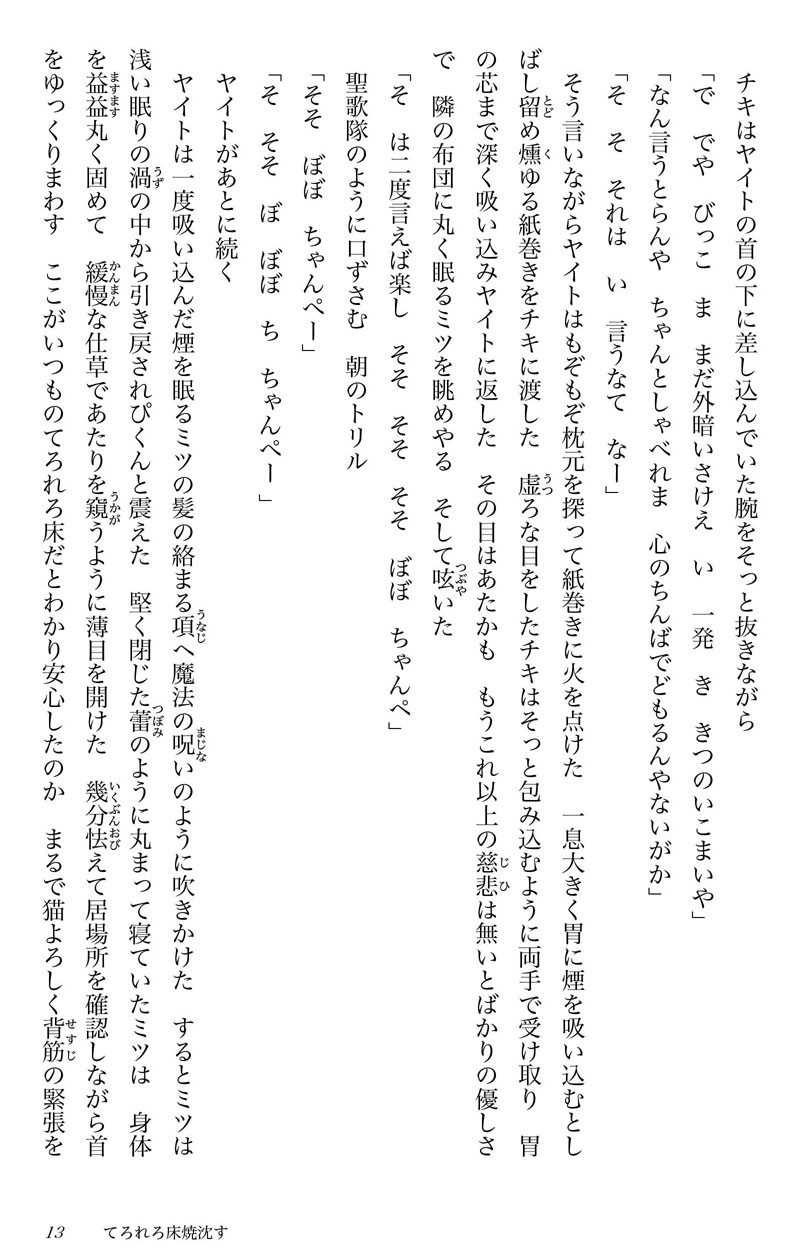 チキはヤイトの首の下に差し込んでいた腕をそっと抜きながら
「で　でや　びっこ　ま　まだ外暗いさけえ　い　一発　き　きつのいこまいや」
「なん言うとらんや　ちゃんとしゃべれま　心のちんばでどもるんやないがか」
「そ　そ　それは　い　言うなて　なー」
そう言いながらヤイトはもぞもぞ枕元を探って紙巻きに火を点けた　一息大きく胃に煙を吸い込むとし
ばし留め燻ゆる紙巻きをチキに渡した　虚ろな目をしたチキはそっと包み込むように両手で受け取り　胃
の芯まで深く吸い込みヤイトに返した　その目はあたかも　もうこれ以上の慈悲は無いとばかりの優しさ
で　隣の布団に丸く眠るミツを眺めやる　そして呟いた
「そ　は二度言えば楽し　そそ　そそ　そそ　ぼぼ　ちゃんぺ」
聖歌隊のように口ずさむ　朝のトリル
「そそ　ぼぼ　ちゃんぺー」
「そ　そそ　ぼ　ぼぼ　ち　ちゃんぺー」
ヤイトがあとに続く
ヤイトは一度吸い込んだ煙を眠るミツの髪の絡まる項へ魔法の呪いのように吹きかけた　するとミツは
浅い眠りの渦の中から引き戻されぴくんと震えた　堅く閉じた蕾のように丸まって寝ていたミツは　身体
を益益丸く固めて　緩慢な仕草であたりを窺うように薄目を開けた　幾分怯えて居場所を確認しながら首
をゆっくりまわす　ここがいつものてろれろ床だとわかり安心したのか　まるで猫よろしく背筋の緊張を
13　てろれろ床焼沈す